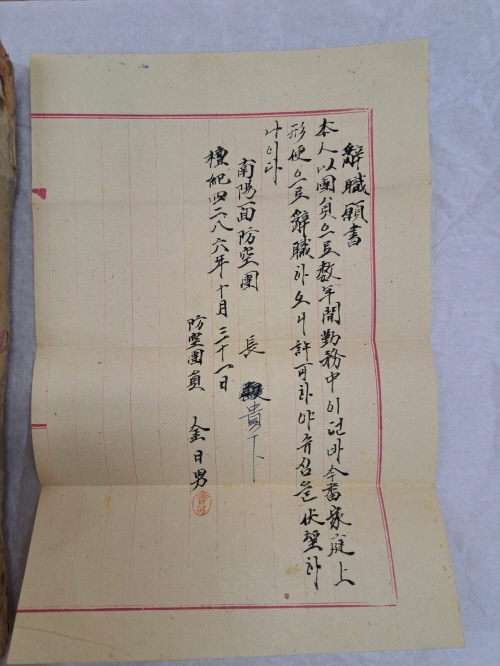 辭職願書
本人以團員으로數年間勤務中이던바今番家庭上
形便으로辭職하오니許可하야주심을伏望하
나이다
南陽面防空團 長 貴下
檀紀四二八六年十月三十一日
防空團員 金日男